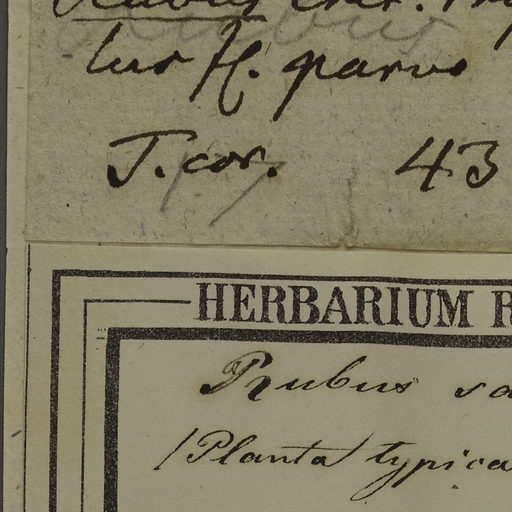 Rubus
lus fl. parvo
J. cor. 43
HERBARIUM R
Rubus sa
(Planta typica